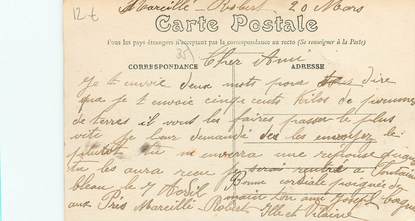 12 t
Marcillé-Robert 20 Mars
Carte Postale
Tous les pays étrangers n'acceptent pas la correspondance au recto (Se renseigner à la Poste)
35)
CORRESPONDANCE
ADRESSE
Cher Ami
Je t envoie deux mots pour dire
que je t envoie cinq cents Kilos de pommes
de terres il vous les faires passer le plus
vite je leur demande des les envoyez le
plutot tu me enverra une reponse quand
tu les aura reçu je serai rentre a Fontaine
bleau le 7 Avril Bonne cordiale poignée de
main ton ami Joseph
aux Prés Marcillé-Robert Ille et Vilaine